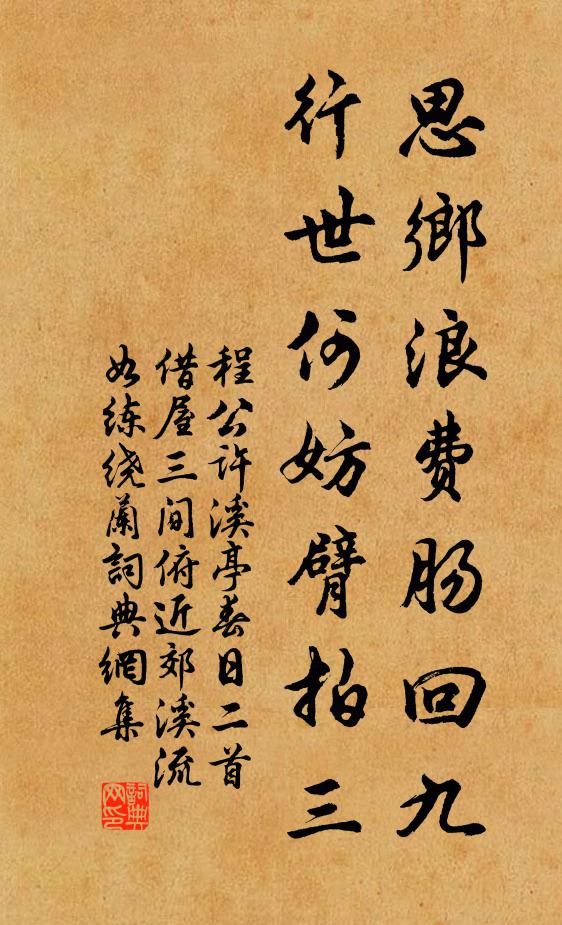 思鄉浪費肠回九
行世何妨臂拍三
程公許溪亭春日二首
借屋三间俯近郊溪流
如练绕蘭詞典網集
詞典
网印